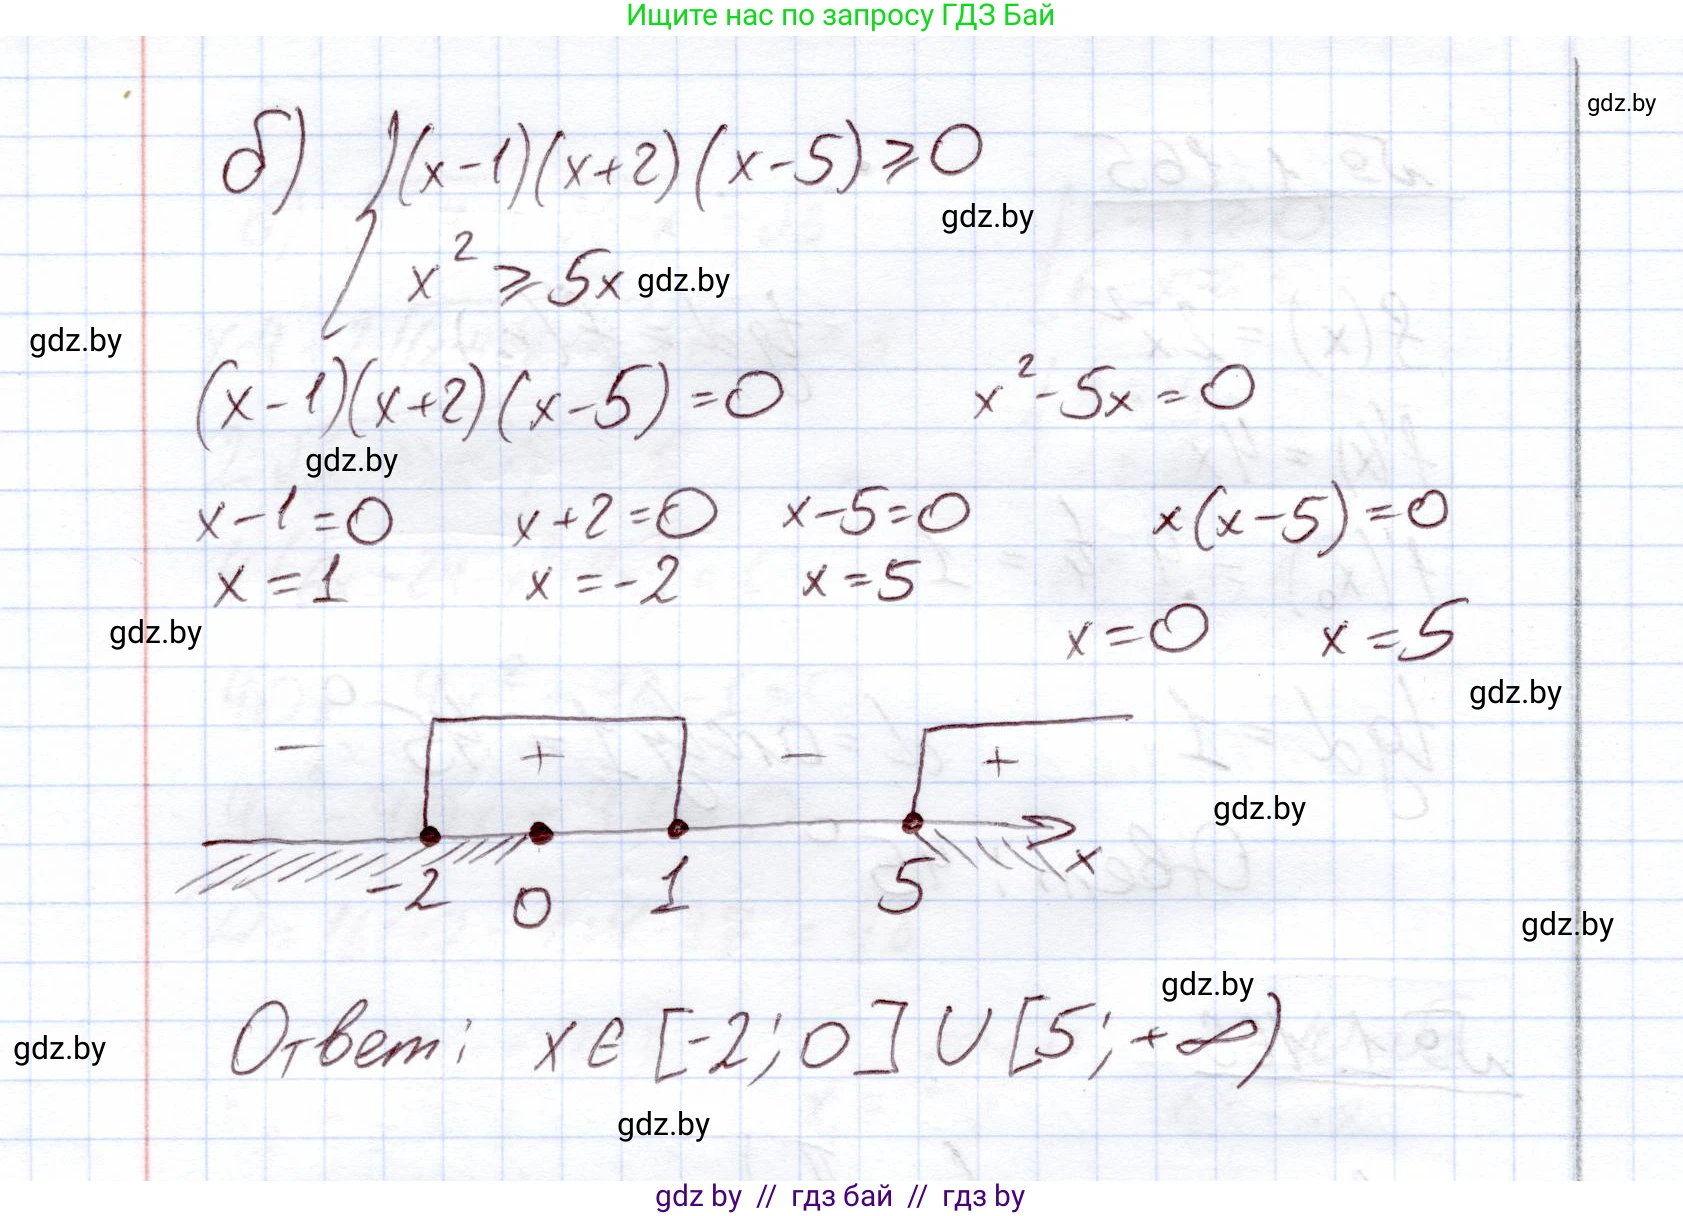 Ищите нас по запросу ГДЗ Бай
gdz.by
б) (x-1)(x+2)(x-5)⩾0
gdz.by
x² ⩾ 5x gdz.by
gdz.by
(x-1)(x+2)(x-5)=0 x²-5x=0
gdz.by
x-1=0 x+2=0 x-5=0 x(x-5)=0
x=1 x=-2 x=5
gdz.by x=0 x=5
gdz.by
- + - +
gdz.by
-2 0 1 5 x
gdz.by
gdz.by
Ответ: x∈[-2;0]∪[5;+∞)
gdz.by
gdz.by
gdz by // гдз бай // гдз by